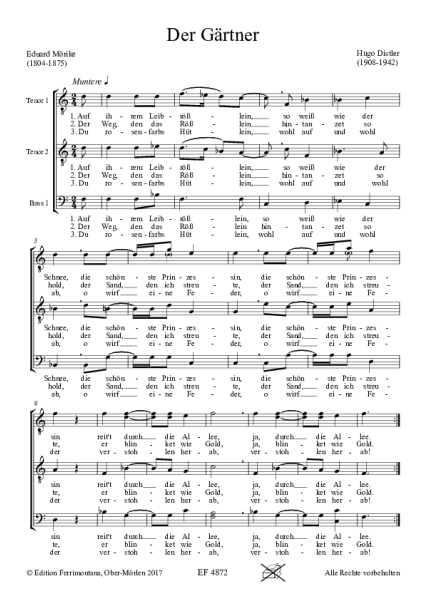 Der Gärtner
Eduard Mörike
(1804-1875)
Hugo Distler
(1908-1942)
Muntere
Tenor 1
1. Auf ih - rem Leib - röß - lein, so weiß wie der
2. Der Weg, den das Röß - lein hin - tan - zet so
3. Du ro - sen - farbs Hüt - lein, wohl auf und wohl
Tenor 2
1. Auf ih - rem Leib - röß - lein, so weiß wie der
2. Der Weg, den das Röß - lein hin - tan - zet so
3. Du ro - sen - farbs Hüt - lein, wohl auf und wohl
Bass 1
1. Auf ih - rem Leib - röß - lein, so weiß wie der
2. Der Weg, den das Röß - lein hin - tan - zet so
3. Du ro - sen - farbs Hüt - lein, wohl auf und wohl
5
Schnee, die schön - ste Prin - zes - sin, die schön - ste Prin - zes -
hold, der Sand, den ich streu - te, der Sand, den ich streu -
ab, o wirf ei - ne Fe - der, o wirf ei - ne Fe -
Schnee, die schön - ste Prin - zes - sin, die schön - ste Prin - zes -
hold, der Sand, den ich streu - te, der Sand, den ich streu -
ab, o wirf ei - ne Fe - der, o wirf ei - ne Fe -
Schnee, die schön - ste Prin - zes - sin, die schön - ste Prin - zes -
hold, der Sand, den ich streu - te, der Sand, den ich streu -
ab, o wirf ei - ne Fe - der, o wirf ei - ne Fe -
9
sin reit't durch die Al - lee, ja, durch die Al - lee.
te, er blin - ket wie Gold, ja, blin - ket wie Gold.
der ver - stoh - len her - ab, ver - stoh - len her - ab!
sin reit't durch die Al - lee, ja, durch die Al - lee.
te, er blin - ket wie Gold, ja, blin - ket wie Gold.
der ver - stoh - len her - ab, ver - stoh - len her - ab!
sin reit't durch die Al - lee, ja, durch die Al - lee.
te, er blin - ket wie Gold, ja, blin - ket wie Gold.
der ver - stoh - len her - ab, ver - stoh - len her - ab!
© Edition Ferrimontana, Ober-Mörlen 2017
EF 4872
Alle Rechte vorbehalten